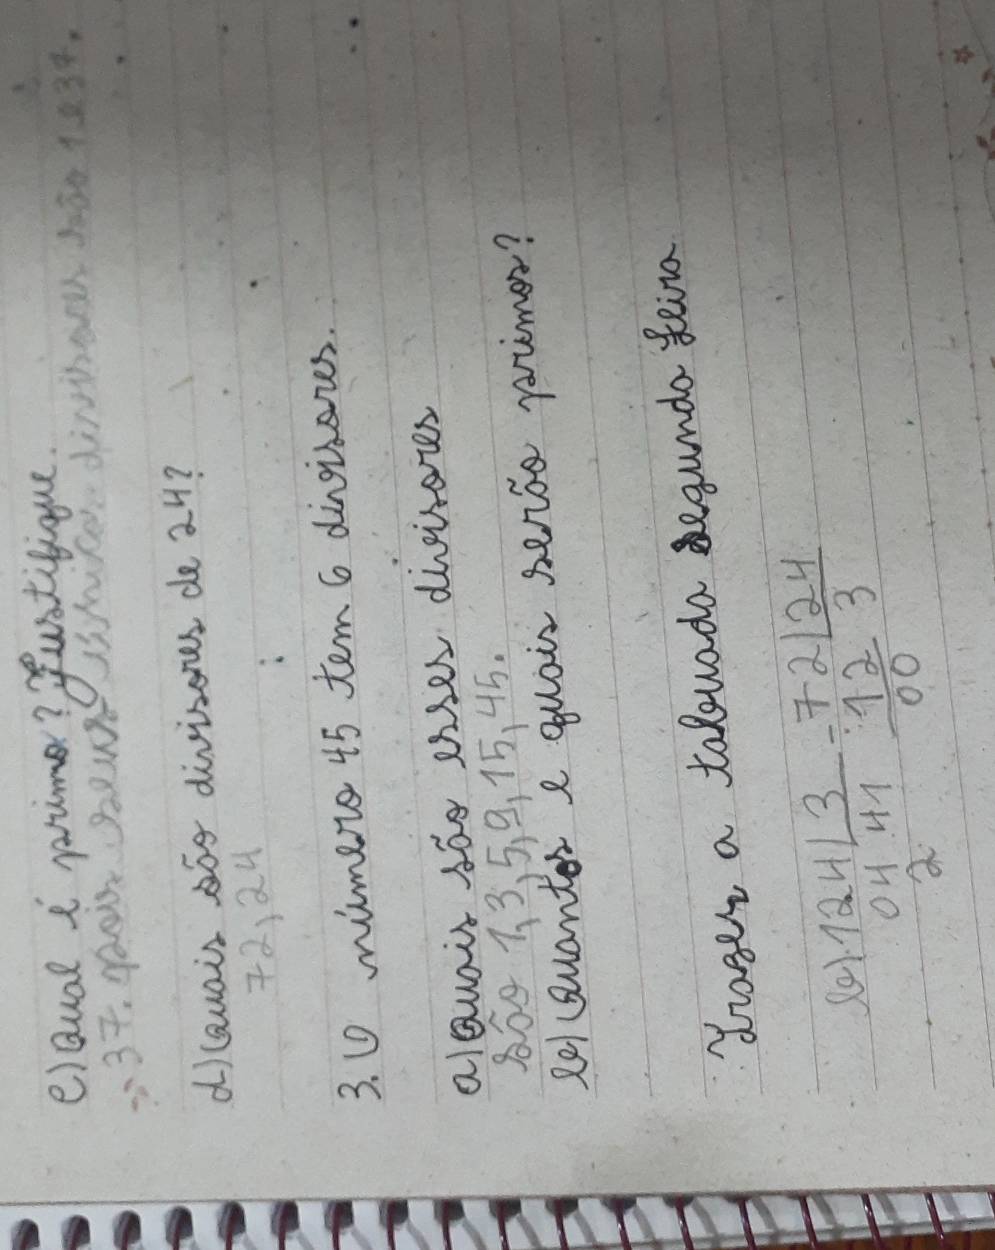 c) Qual é primo? Justifique.
→ 37. pois seus únicos divisores são 1 e 37.
d) Quais são divisores de 24?
72, 24
3. O número 45 tem 6 divisores.
a) Quais são esses divisores
São 1, 3, 5, 9, 15, 45.
b) Quantos e quais serão primos?
Trazer a tabuada segunda feira
b) 124 | 3 - 72 | 24
04 41 12 3
2 00